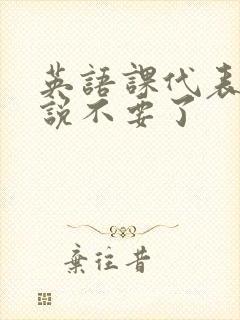 英語課代表
説不要了
棄往昔